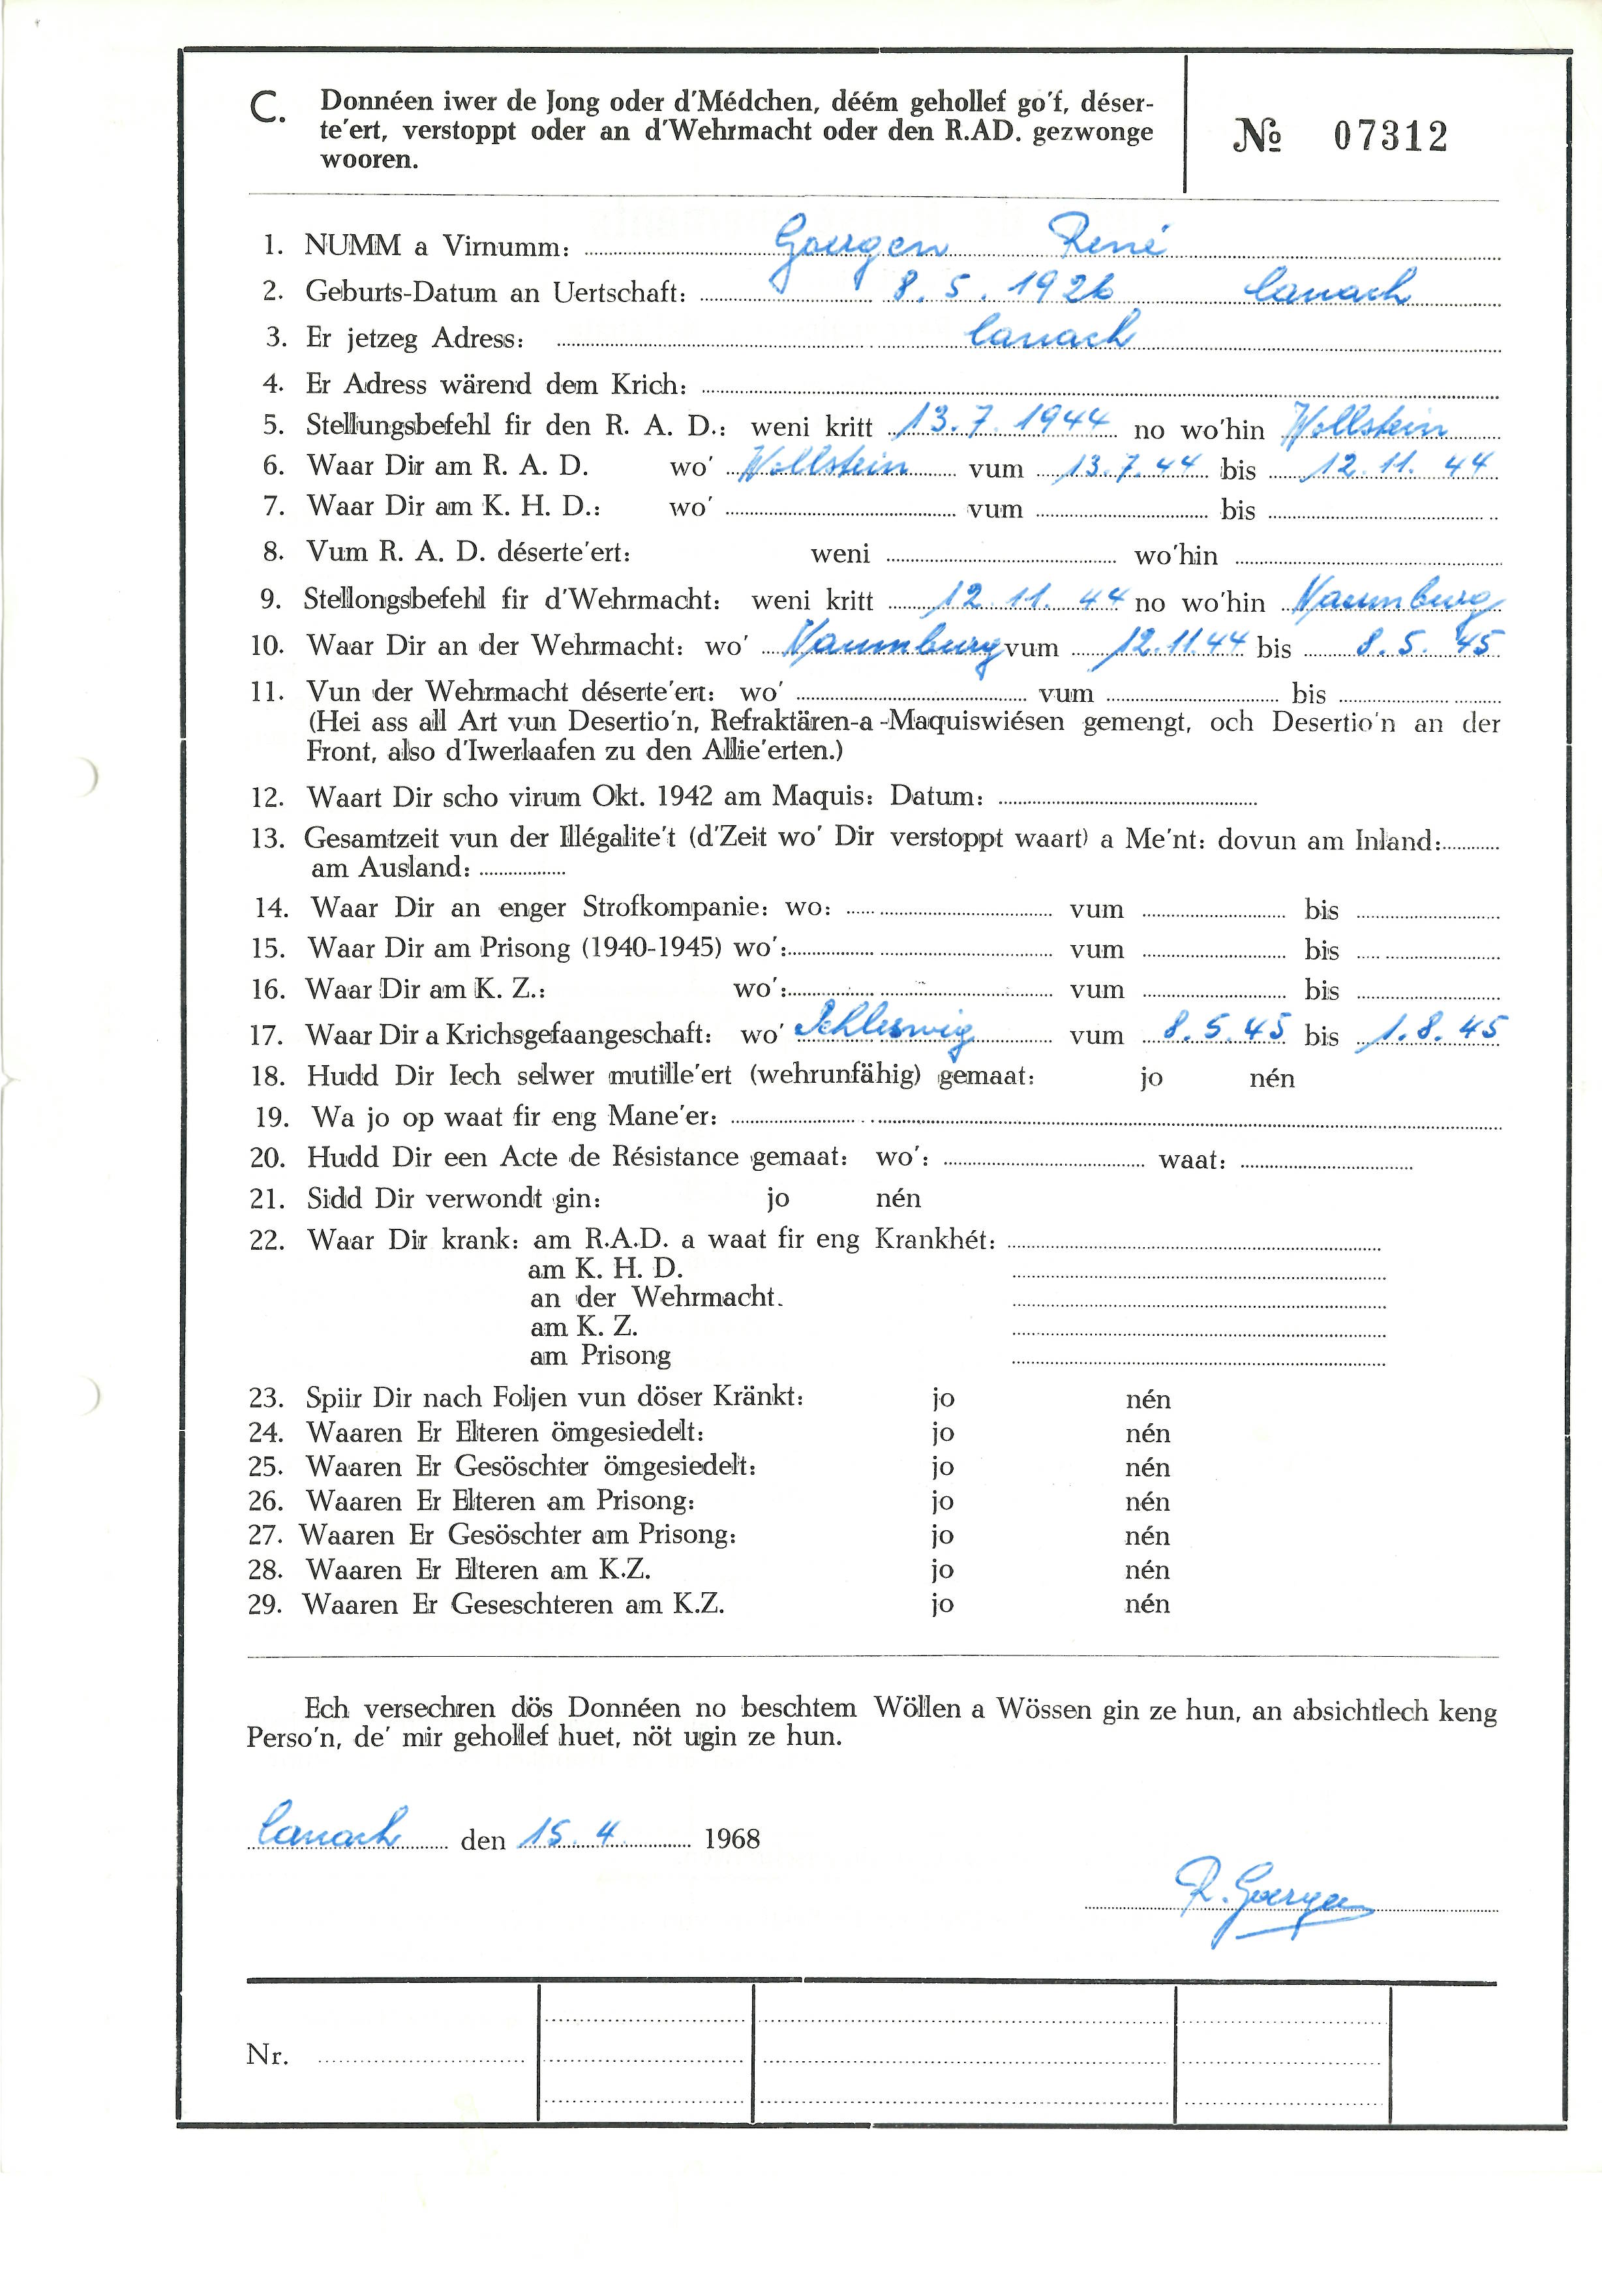 C. Donnéen iwer de Jong oder d'Médchen, déém gehollef go'f, déser-
te'ert, verstoppt oder an d'Wehrmacht oder den R.AD. gezwonge
wooren.
№ 07312
1. NUMM a Virnumm: Goergen René
2. Geburts-Datum an Uertschaft: 8. 5. 1926 Canach
3. Er jetzeg Adress: Canach
4. Er Adress wärend dem Krich:
5. Stellungsbefehl fir den R. A. D.: weni kritt 13. 7. 1944 no wo'hin Wollstein
6. Waar Dir am R. A. D. wo' Wollstein vum 13. 7. 44 bis 12. 11. 44
7. Waar Dir am K. H. D.: wo' vum bis
8. Vum R. A. D. déserte'ert: weni wo'hin
9. Stellongsbefehl fir d'Wehrmacht: weni kritt 12. 11. 44 no wo'hin Naumburg
10. Waar Dir an der Wehrmacht: wo' Naumburg vum 12. 11. 44 bis 8. 5. 45
11. Vun der Wehrmacht déserte'ert: wo' vum bis
(Hei ass all Art vun Desertio'n, Refraktären-a-Maquiswiésen gemengt, och Desertio'n an der
Front, also d'Iwerlaafen zu den Allie'erten.)
12. Waart Dir scho virum Okt. 1942 am Maquis: Datum:
13. Gesamtzeit vun der Illégalite't (d'Zeit wo' Dir verstoppt waart) a Me'nt: dovun am Inland:
am Ausland:
14. Waar Dir an enger Strofkompanie: wo: vum bis
15. Waar Dir am Prisong (1940-1945) wo': vum bis
16. Waar Dir am K. Z.: wo': vum bis
17. Waar Dir a Krichsgefaangeschaft: wo' Schleswig vum 8. 5. 45 bis 1. 8. 45
18. Hudd Dir Iech selwer mutille'ert (wehrunfähig) gemaat: jo nén
19. Wa jo op waat fir eng Mane'er:
20. Hudd Dir een Acte de Résistance gemaat: wo': waat:
21. Sidd Dir verwondt gin: jo nén
22. Waar Dir krank: am R.A.D. a waat fir eng Krankhét:
am K. H. D.
an der Wehrmacht.
am K. Z.
am Prisong
23. Spiir Dir nach Foljen vun döser Kränkt: jo nén
24. Waaren Er Elteren ömgesiedelt: jo nén
25. Waaren Er Gesöschter ömgesiedelt: jo nén
26. Waaren Er Elteren am Prisong: jo nén
27. Waaren Er Gesöschter am Prisong: jo nén
28. Waaren Er Elteren am K.Z. jo nén
29. Waaren Er Geseschteren am K.Z. jo nén
Ech versechren dös Donnéen no beschtem Wöllen a Wössen gin ze hun, an absichtlech keng
Perso'n, de' mir gehollef huet, nöt ugin ze hun.
Canach den 15. 4. 1968
R. Goergen
Nr.